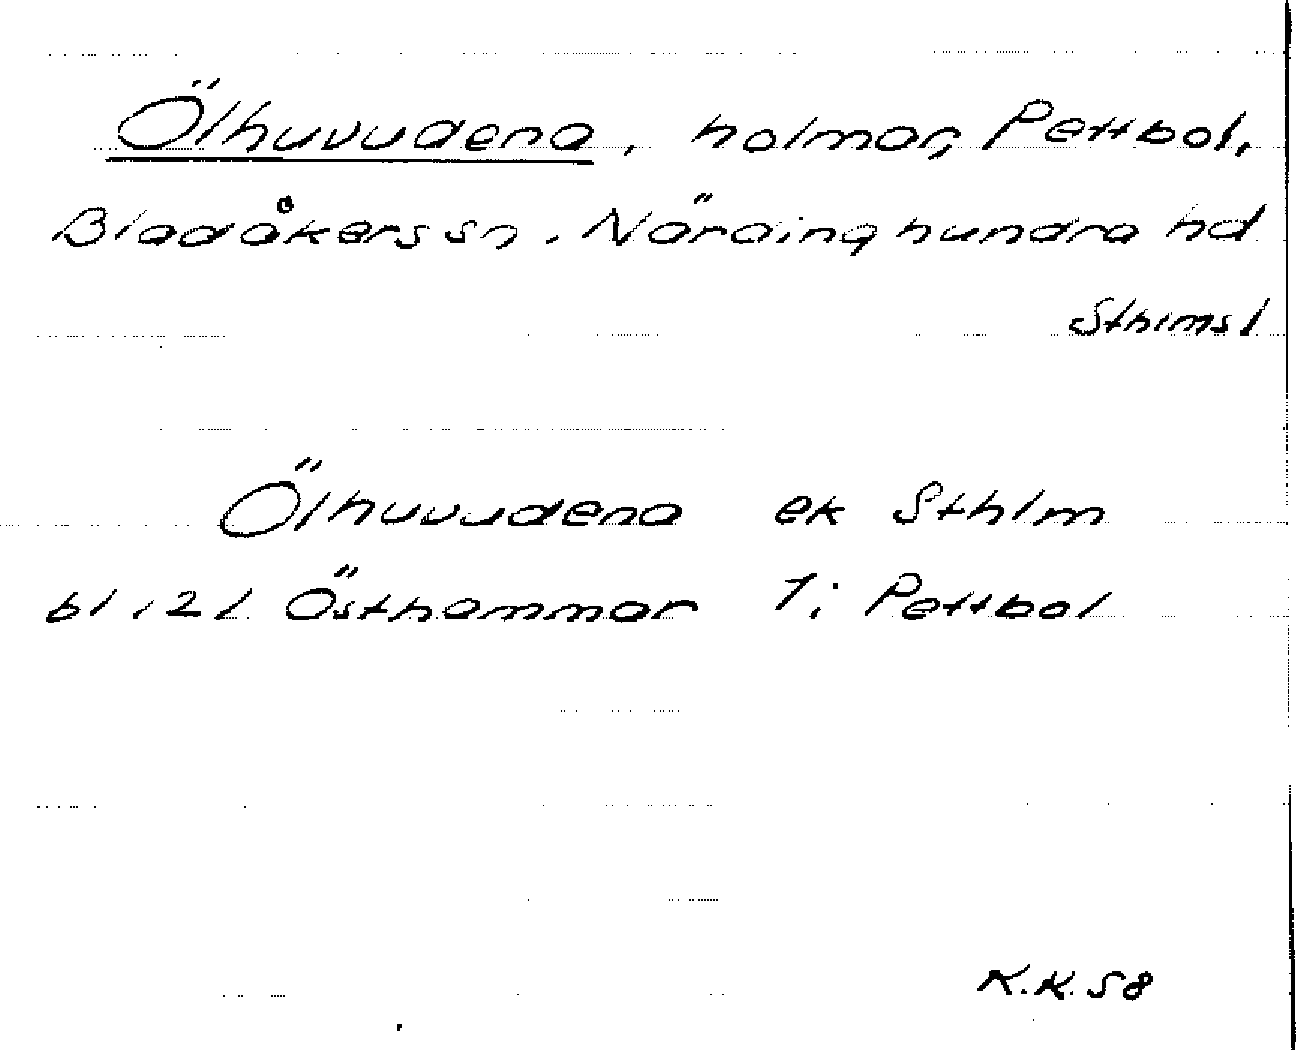 Ölhuvudena, holmar, Pettbol,
Bladåkers sn. Närdinghundra hd
Sthlmsl
Ölhuvudena ek Sthlm
bl 121 Östhammar T: Pettbol
K.K. 58